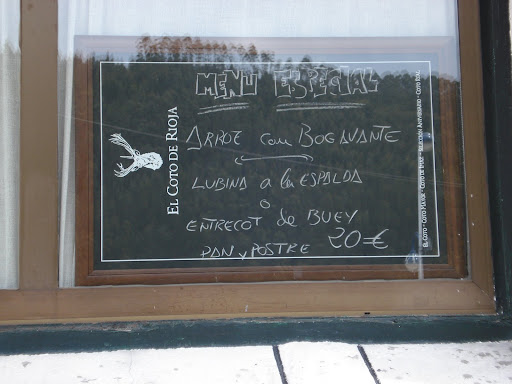 MENU ESPECIAL
ARROZ con BOGAVANTE
LUBINA a la ESPALDA
o
ENTRECOT de BUEY
PAN y POSTRE 20€
EL COTO DE RIOJA